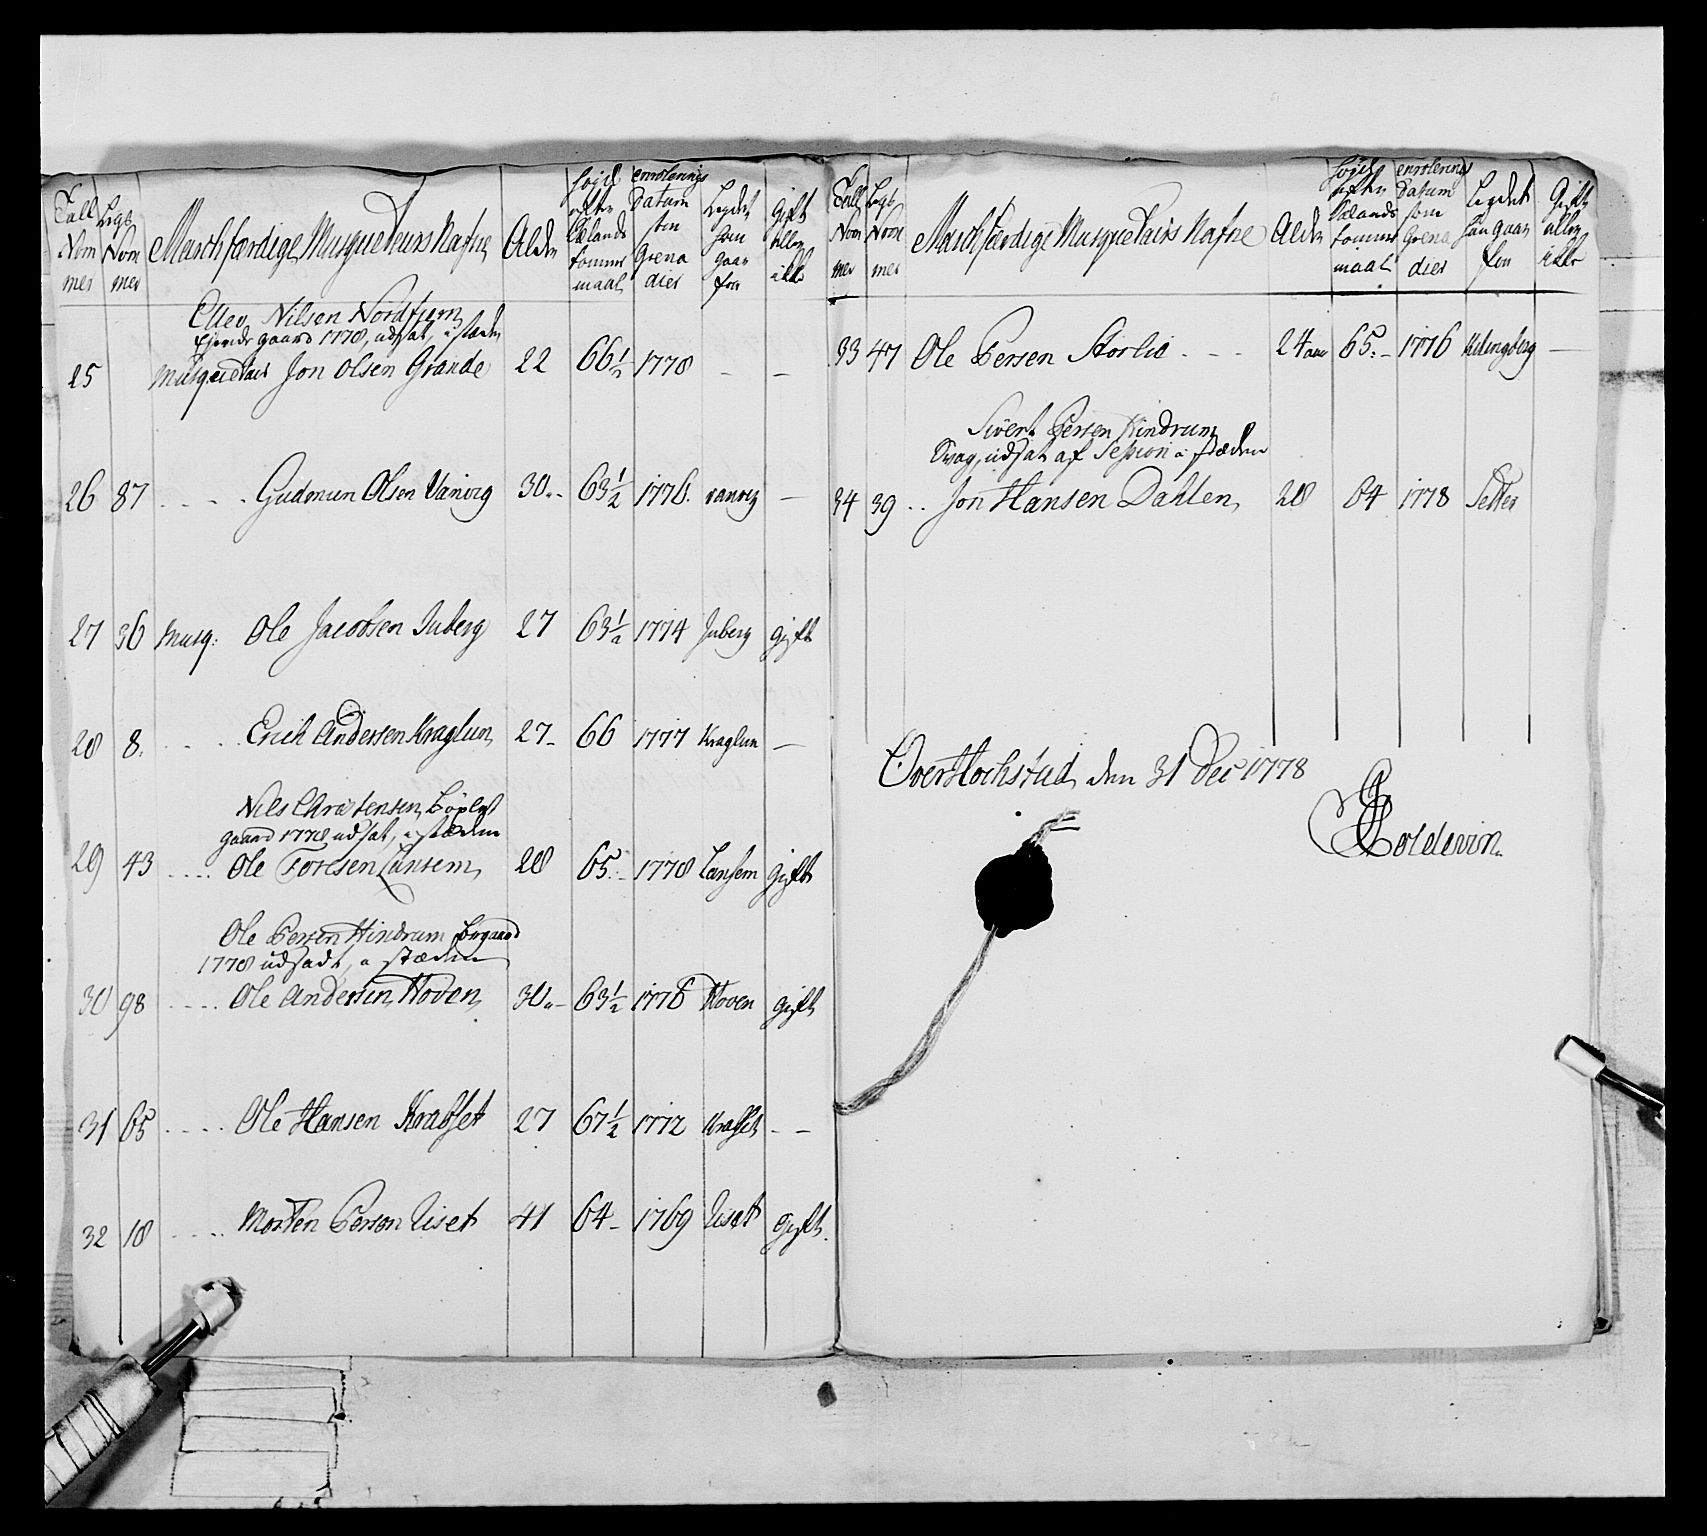 Tall Nom mer | Legs Nom mer | Marchfærdige Musqueteurs Nafne | Alder | højde efter Siælands tommer maal | enrolerings Datum som Grenadier | Legdet som gaar for | Gift eller ikke
Ellev Nilsen Nordtiem
Ejende gaard 1778, udsat, i stæden
25 Musquetair Jon Olsen Grande 22 66½ 1778 – –
26 87 Gudmun Olsen Vanvig 30 63½ 1776 vanvig –
27 36 Musq: Ole Jacobsen Juberg 27 63½ 1774 Juberg gift
28 8. Erich Andersen Kraglun 27 66 1777 Kraglun –
Nils Christensen
gaard 1778 udsat, i stæden
29 43 Ole Toresen Lansem 28 65 1778 Lansem gift
Ole Persen Hindrum
1778 udsadt, i stæden
30 98 Ole Andersen Hoven 30 63½ 1776 Hoven gift
31 65 Ole Hansen Krabset 27 67½ 1772 Krabset – –
32 18 Morten Person Uset 41 64 1769 Uset gift.
Tall Nom mer | Legs Nom mer | Marchfærdige Musquetairs Nafne | Alder | højde efter Siælands tommer maal | enrolerings Datum som Grenadier | Legdet han gaar for | Gift eller ikke
33 47 Ole Persen Storlie 24 aar 65 1776 –
Sivert Persen Hindrum
Svag, udsat af Session i stæden
34 39 Jon Hansen Dahlen 28 64 1778 Setter
OverHochstad den 31 Dec 1778
Coldevin.